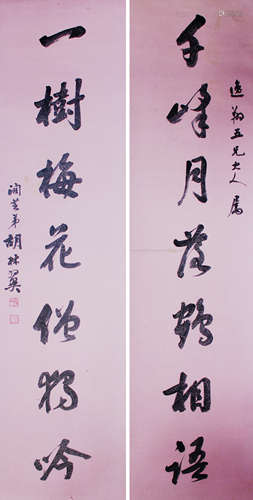 逸五兄大人屬
千峰月落鶴相語
一樹梅花僧獨吟
潤芝弟胡林翼